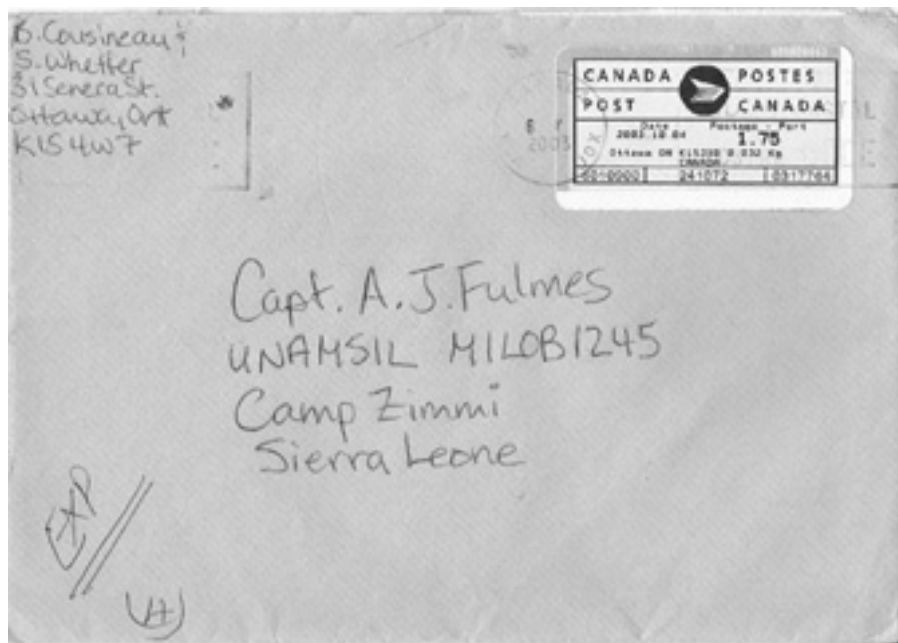 B. Cousineau &
S. Whetter
31 Seneca St.
Ottawa, Ont
K1S 4W7
CANADA POSTES
POST CANADA
Date Postage - Port
2003.10.04 1.75
Ottawa ON 0.032 Kg
CANADA
241072 0317764
2003
Capt. A. J. Fulmes
UNAMSIL MILOB1245
Camp Zimmi
Sierra Leone
EXP